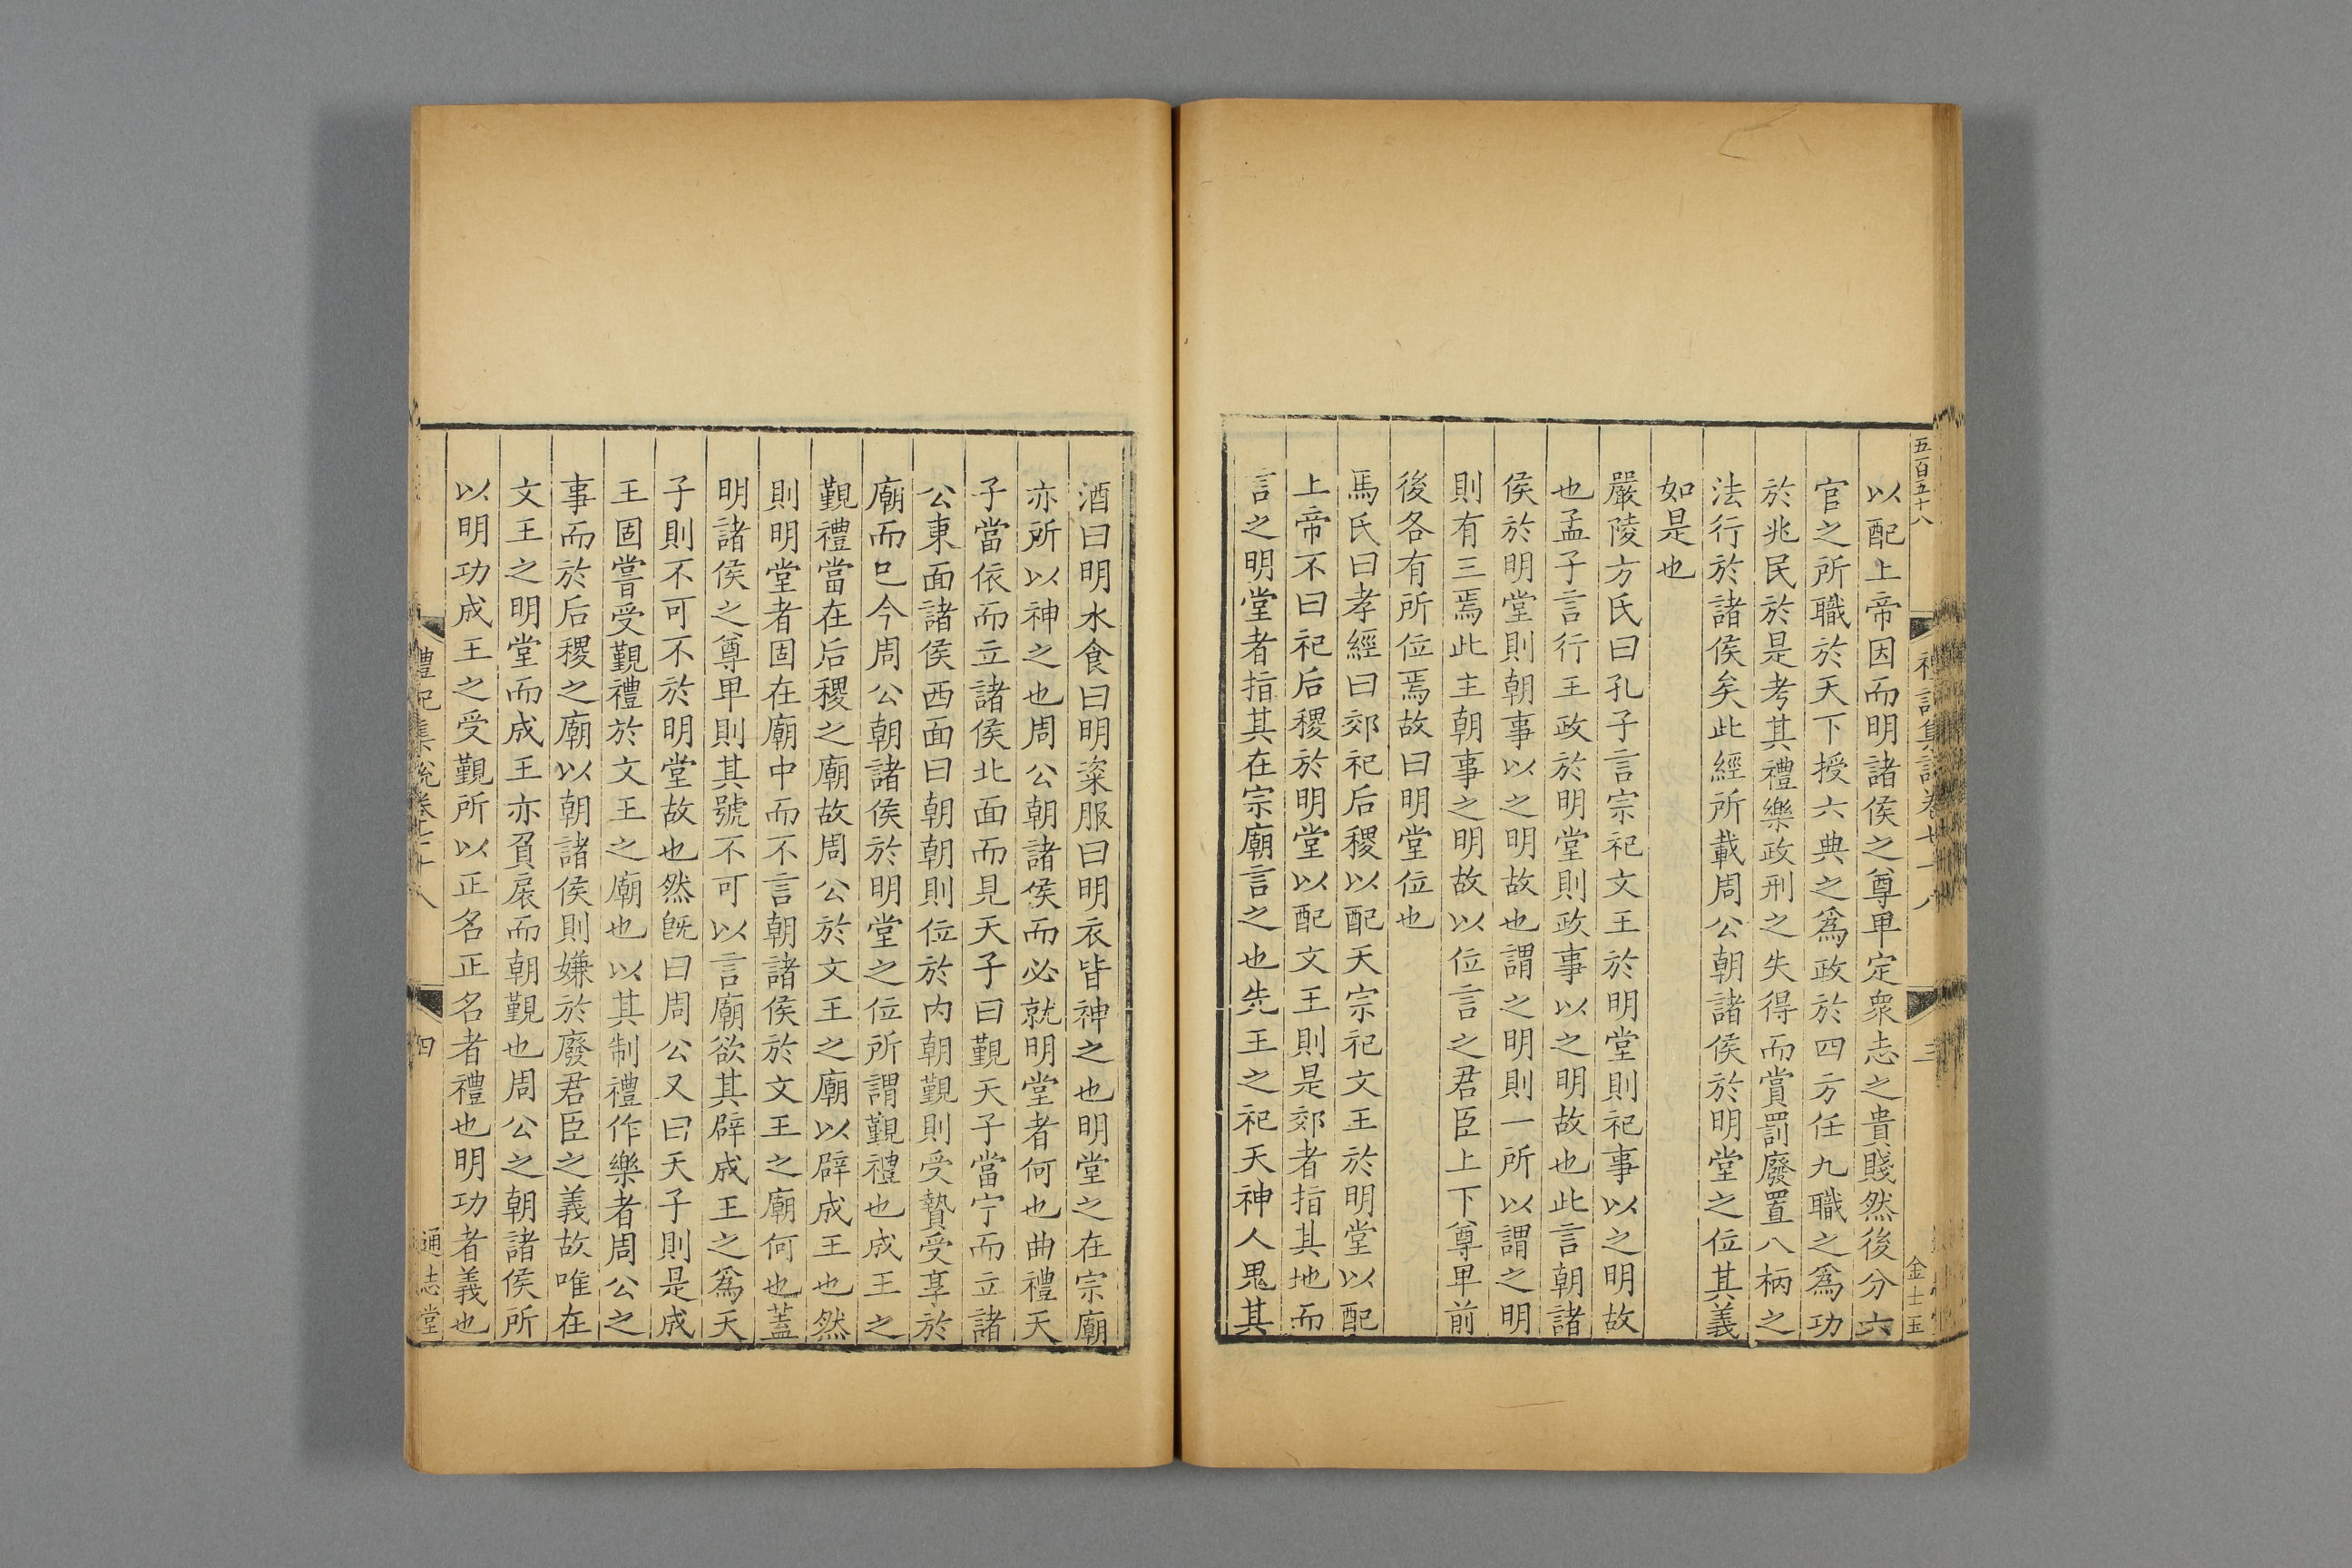 五百五十八
禮記集說卷七十八
三
金士玉
以配上帝因而明諸侯之尊卑定衆志之貴賤然後分六
官之所職於天下授六典之爲政於四方任九職之爲功
於兆民於是考其禮樂政刑之失得而賞罰廢置八柄之
法行於諸侯矣此經所載周公朝諸侯於明堂之位其義
如是也
嚴陵方氏曰孔子言宗祀文王於明堂則祀事以之明故
也孟子言行王政於明堂則政事以之明故也此言朝諸
侯於明堂則朝事以之明故也謂之明則一所以謂之明
則有三焉此主朝事之明故以位言之君臣上下尊卑前
後各有所位焉故曰明堂位也
馬氏曰孝經曰郊祀后稷以配天宗祀文王於明堂以配
上帝不曰祀后稷於明堂以配文王則是郊者指其地而
言之明堂者指其在宗廟言之也先王之祀天神人鬼其
酒曰明水食曰明粢服曰明衣皆神之也明堂之在宗廟
亦所以神之也周公朝諸侯而必就明堂者何也曲禮天
子當依而立諸侯北面而見天子曰覲天子當宁而立諸
公東面諸侯西面曰朝朝則位於内朝覲則受贄受享於
廟而已今周公朝諸侯於明堂之位所謂覲禮也成王之
覲禮當在后稷之廟故周公於文王之廟以辟成王也然
則明堂者固在廟中而不言朝諸侯於文王之廟何也蓋
明諸侯之尊卑則其號不可以言廟欲其辟成王之爲天
子則不可不於明堂故也然旣曰周公又曰天子則是成
王固嘗受覲禮於文王之廟也以其制禮作樂者周公之
事而於后稷之廟以朝諸侯則嫌於廢君臣之義故唯在
文王之明堂而成王亦負扆而朝覲也周公之朝諸侯所
以明功成王之受覲所以正名正名者禮也明功者義也
禮記集說卷七十八
四
通志堂